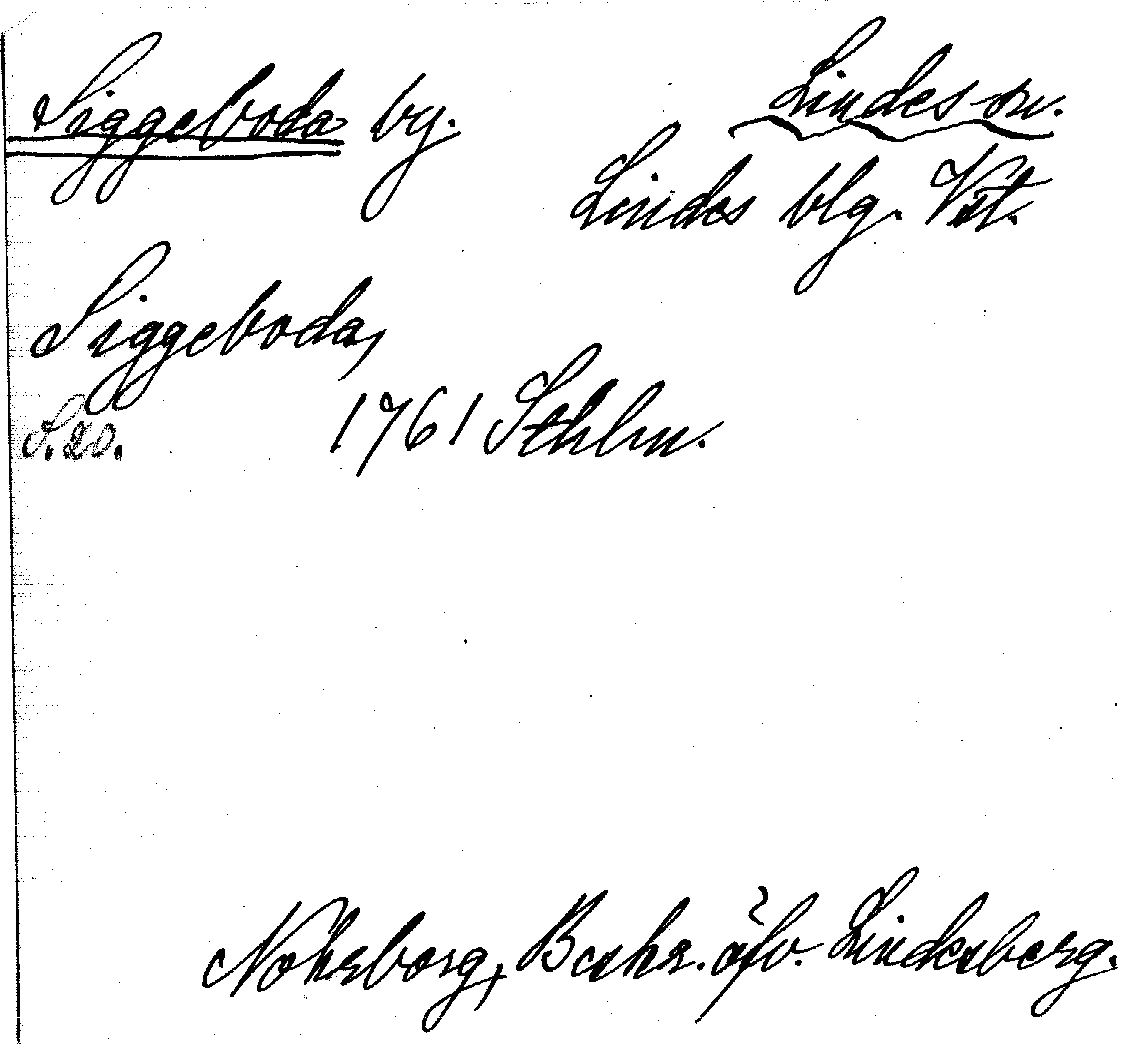 Siggeboda by.
Lindes sn.
Lindes blg. Vstm.
Siggeboda,
S. 20. 1761 Sthlm.
Nohrborg, Beskr. öfv. Lindesberg.